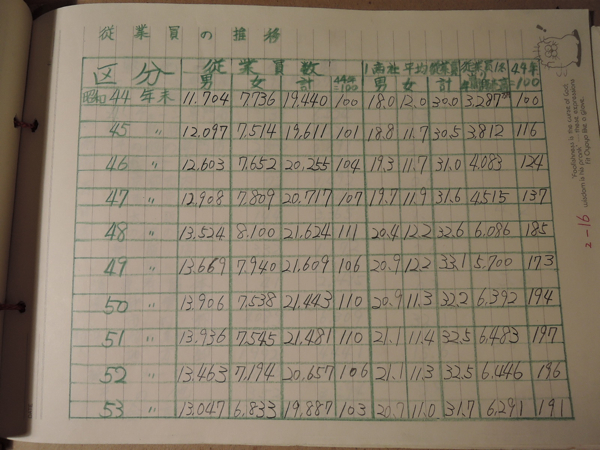 従業員の推移
区分 従業員数 1商社平均従業員 従業員1人 49年
男 女 計 44年=100 男 女 計 =100
昭和44年末 11.704 7.736 19.440 100 18.0 12.0 30.0 3.287 100
45 〃 12.097 7.514 19.611 101 18.8 11.7 30.5 3.812 116
46 〃 12.603 7.652 20.255 104 19.3 11.7 31.0 4.083 124
47 〃 12.908 7.809 20.717 107 19.7 11.9 31.6 4.515 137
48 〃 13.524 8.100 21.624 111 20.4 12.2 32.6 6.086 185
49 〃 13.669 7.940 21.609 106 20.9 12.2 33.1 5.700 173
50 〃 13.906 7.538 21.443 110 20.9 11.3 32.2 6.392 194
51 〃 13.936 7.545 21.481 110 21.1 11.4 32.5 6.483 197
52 〃 13.463 7.194 20.657 106 21.1 11.3 32.5 6.446 196
53 〃 13.047 6.833 19.887 103 20.7 11.0 31.7 6.291 191
2-16